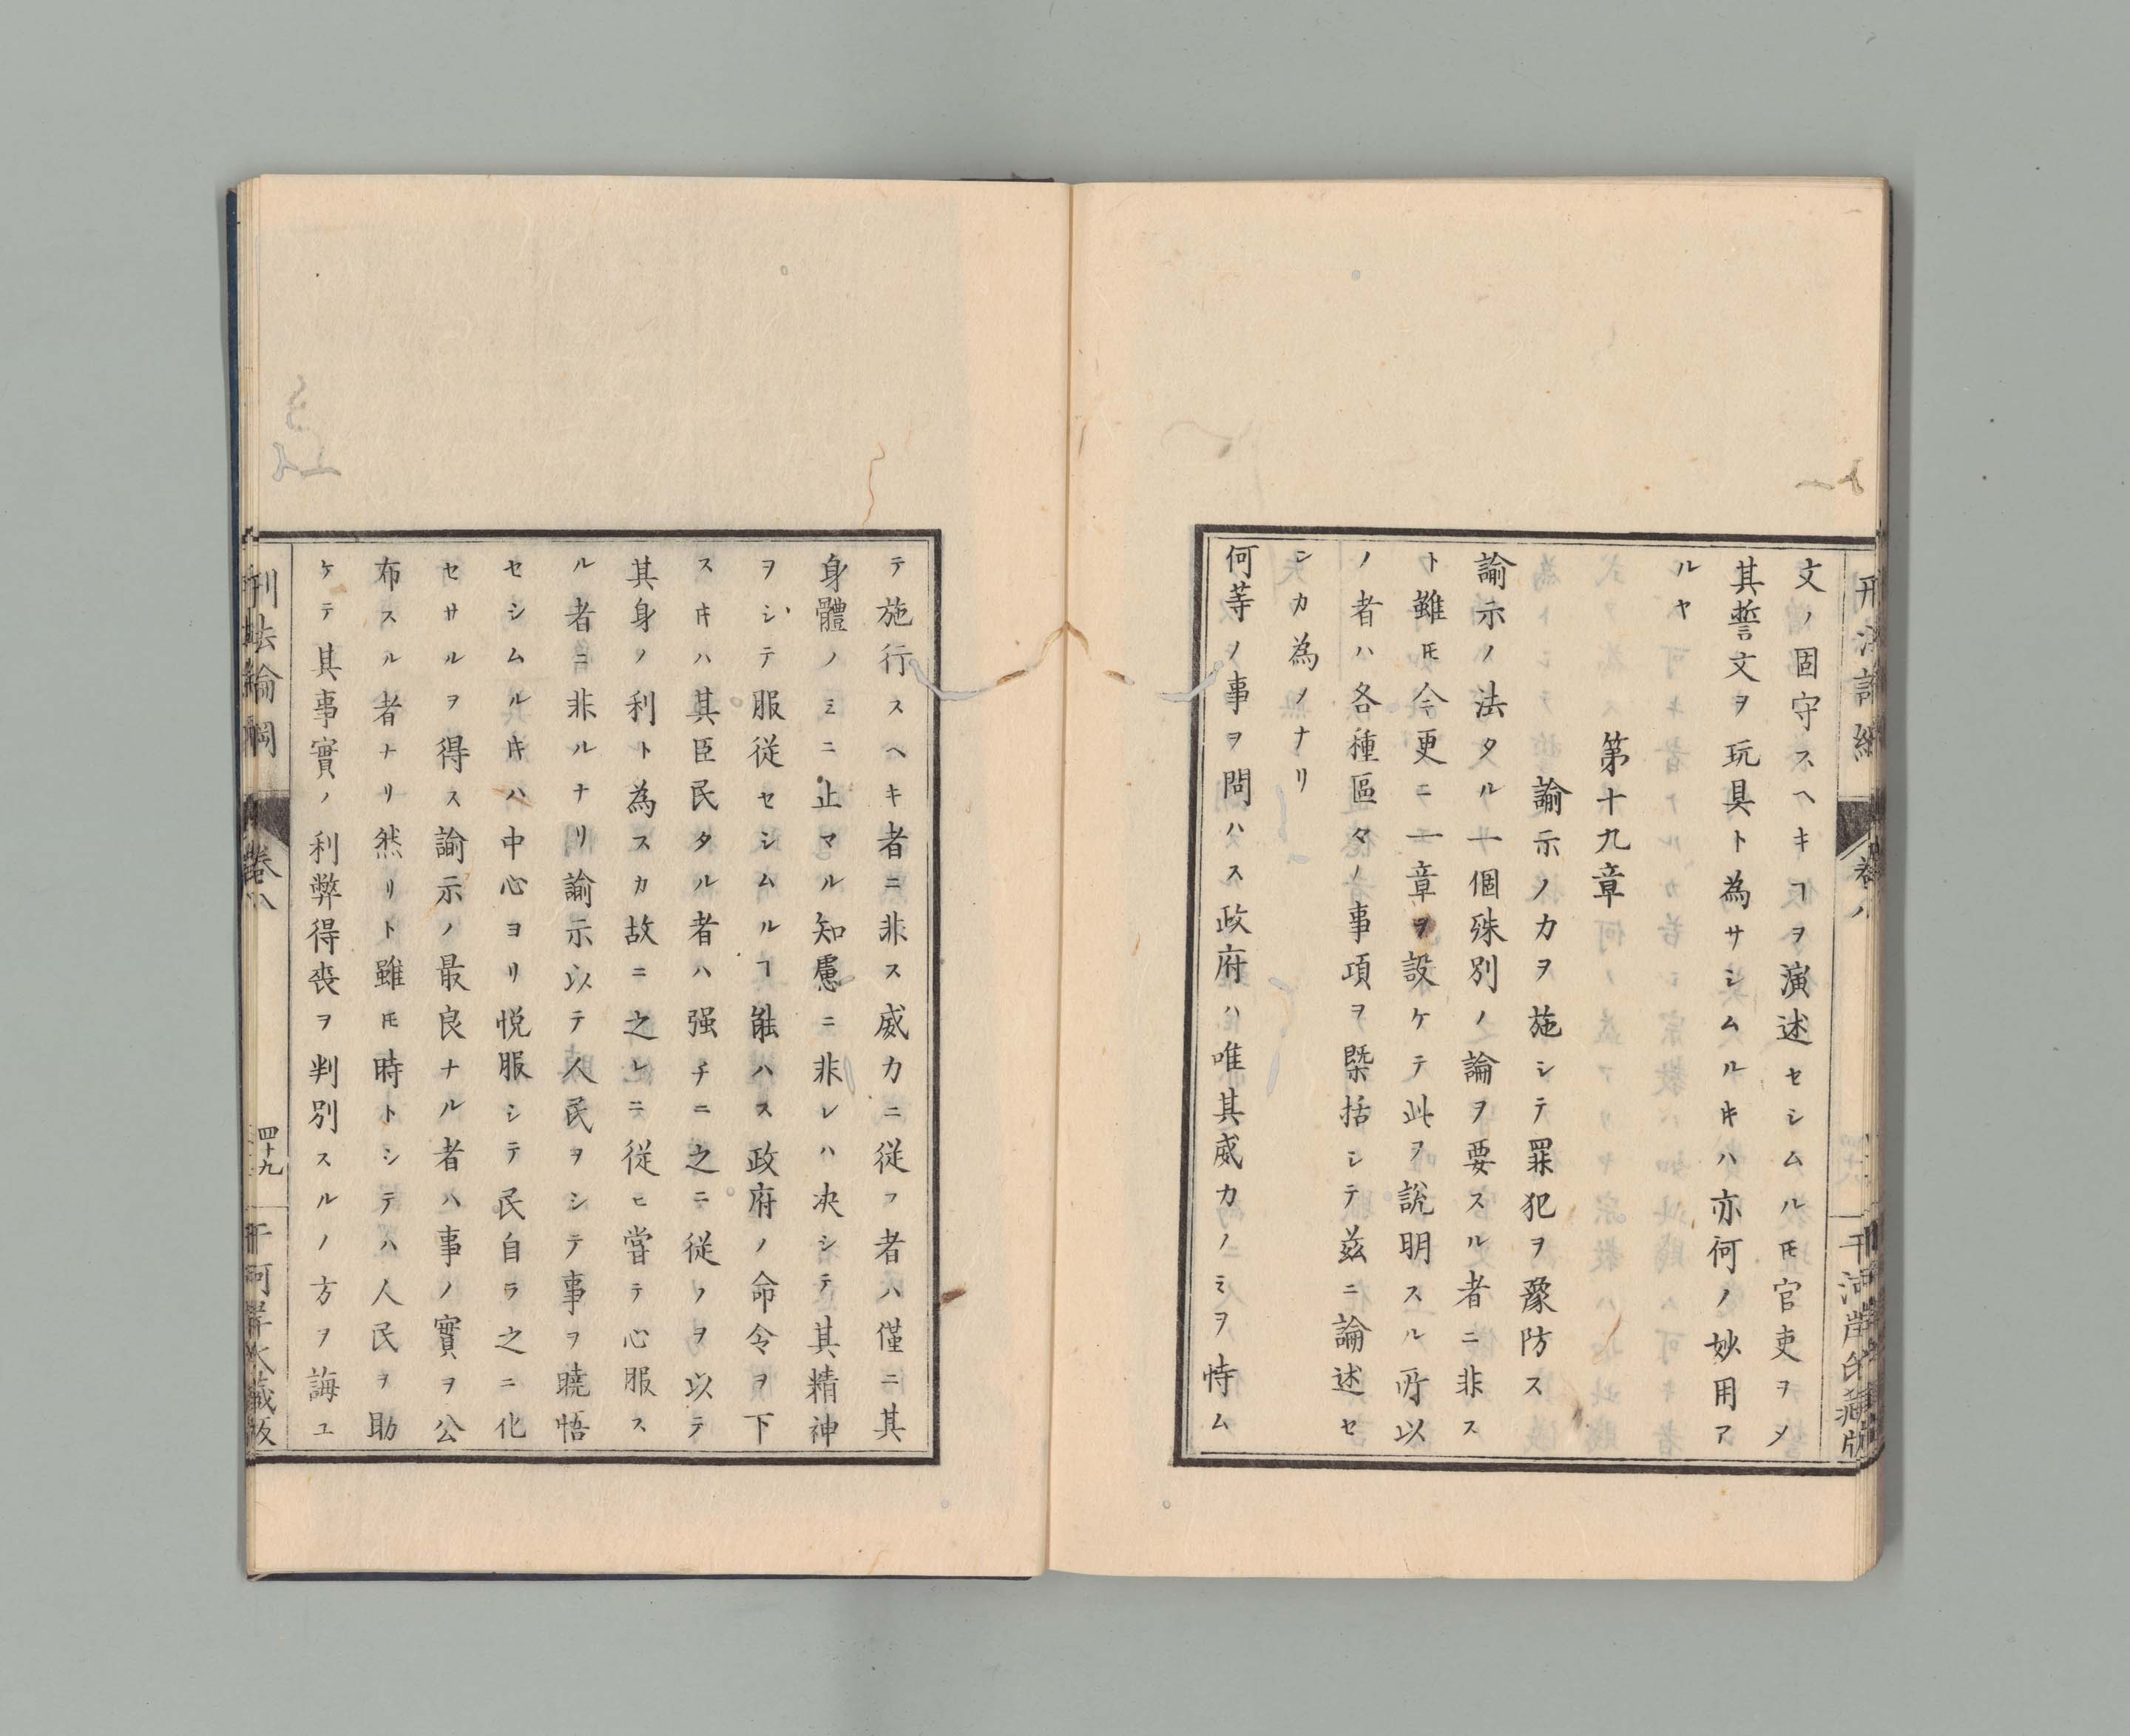 文ノ固守スヘキヿヲ演述セシムルモ官吏ヲメ
其誓文ヲ玩具ト為サシムルキハ亦何ノ妙用ア
ルヤ
第十九章
諭示ノカヲ施シテ罪犯ヲ豫防ス
諭示ノ法タル一個殊別ノ論ヲ要スル者ニ非ス
ト雖𪜈今更ニ一章ヲ設ケテ此ヲ說明スル所以
ノ者ハ各種區々ノ事項ヲ槩括シテ茲ニ論述セ
ンカ為メナリ
何等ノ事ヲ問ハス政府ハ唯其威力ノミヲ恃ム
テ施行スヘキ者ニ非ス威力ニ従フ者ハ僅ニ其
身體ノミニ止マル知慮ニ非レハ决シテ其精神
ヲシテ服従セシムルヿ能ハス政府ノ命令ヲ下
スキハ其臣民タル者ハ强チニ之ニ従フヲ以テ
其身ノ利ト為スカ故ニ之レニ従ヒ嘗テ心服ス
ル者ニ非ルナリ諭示以テ人民ヲシテ事ヲ曉悟
セシムルキハ中心ヨリ悦服シテ民自ラ之ニ化
セサルヲ得ス諭示ノ最良ナル者ハ事ノ實ヲ公
布スル者ナリ然リト雖𪜈時トシテハ人民ヲ助
ケテ其事實ノ利弊得喪ヲ判別スルノ方ヲ誨ユ
刑法論綱
卷八
四十九